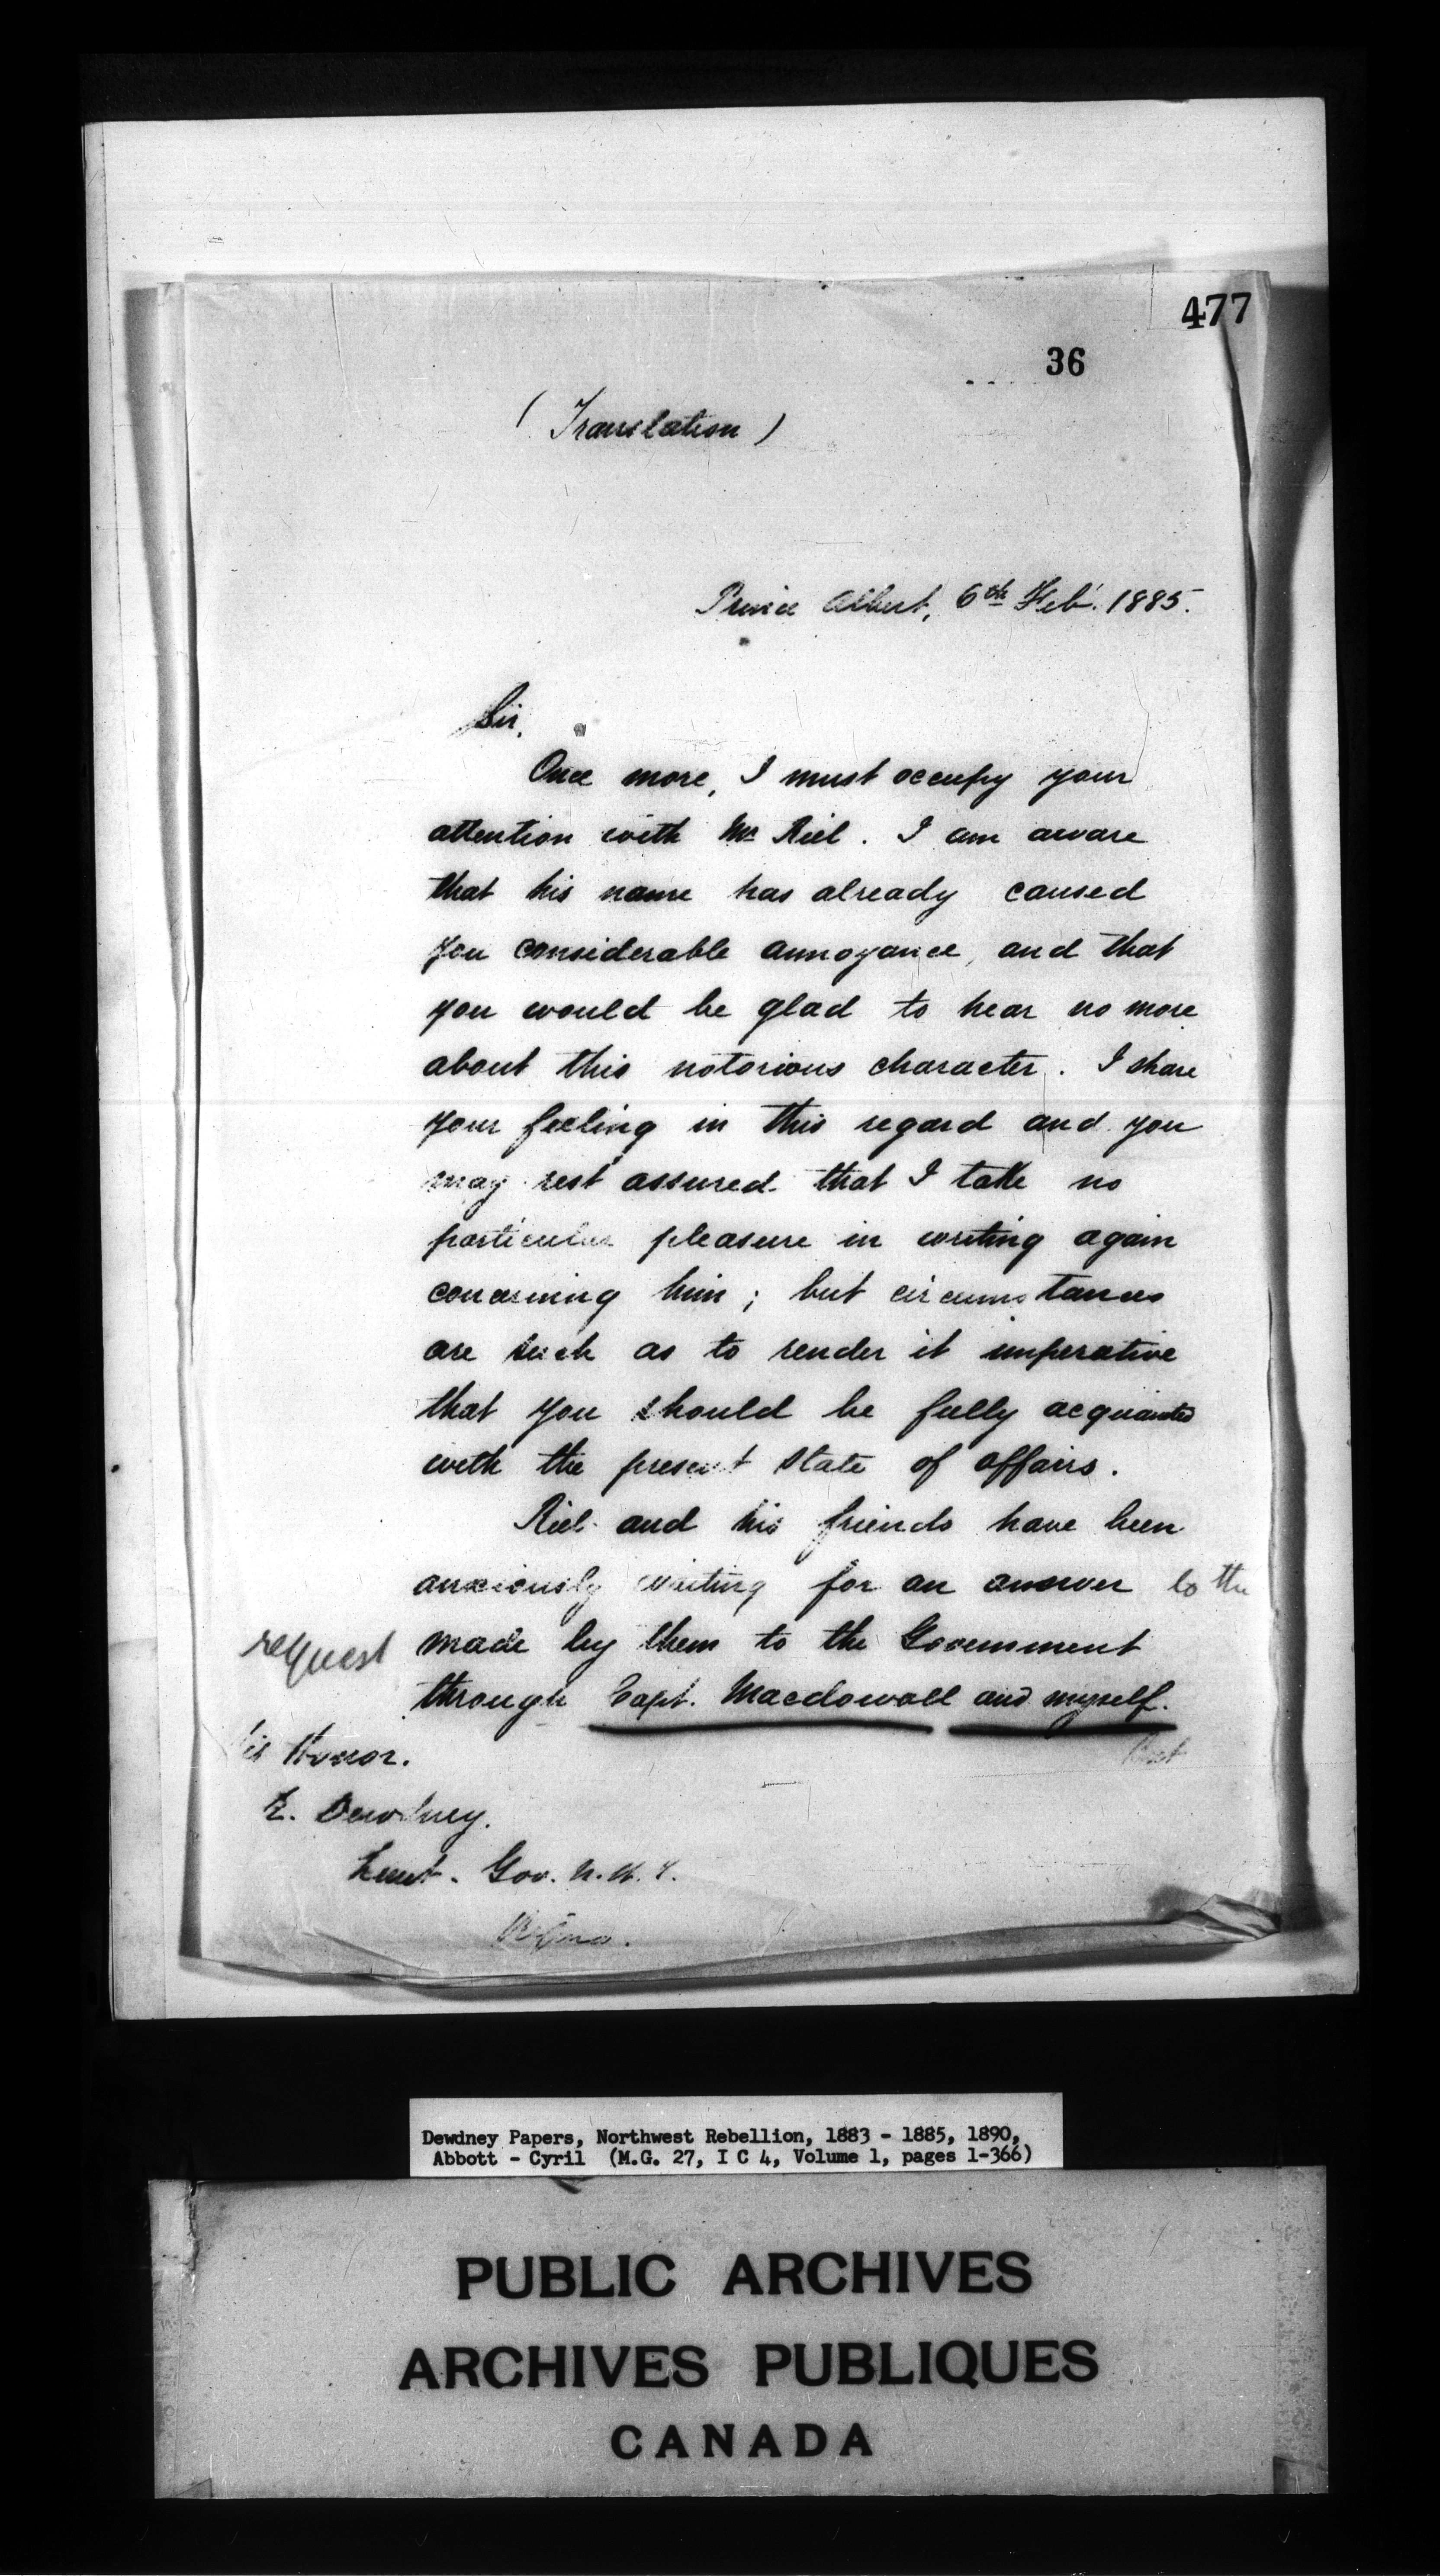 477
36
(Translation)
Prince Albert, 6th Feb'. 1885.
Sir,
Once more, I must occupy your
attention with Mr Riel. I am aware
that his name has already caused
you considerable annoyance, and that
you would be glad to hear no more
about this notorious character. I share
your feeling in this regard and you
may rest assured that I take no
particular pleasure in writing again
concerning him; but circumstances
are such as to render it imperative
that you should be fully acquainted
with the present state of affairs.
Riel and his friends have been
anxiously waiting for an answer to the
request made by them to the Government
through Capt. Macdowall and myself.
But
His Honor.
E. Dewdney.
Lieut. Gov. N.W.T.
Regina.
Dewdney Papers, Northwest Rebellion, 1883 - 1885, 1890,
Abbott - Cyril (M.G. 27, I C 4, Volume 1, pages 1-366)
PUBLIC ARCHIVES
ARCHIVES PUBLIQUES
CANADA